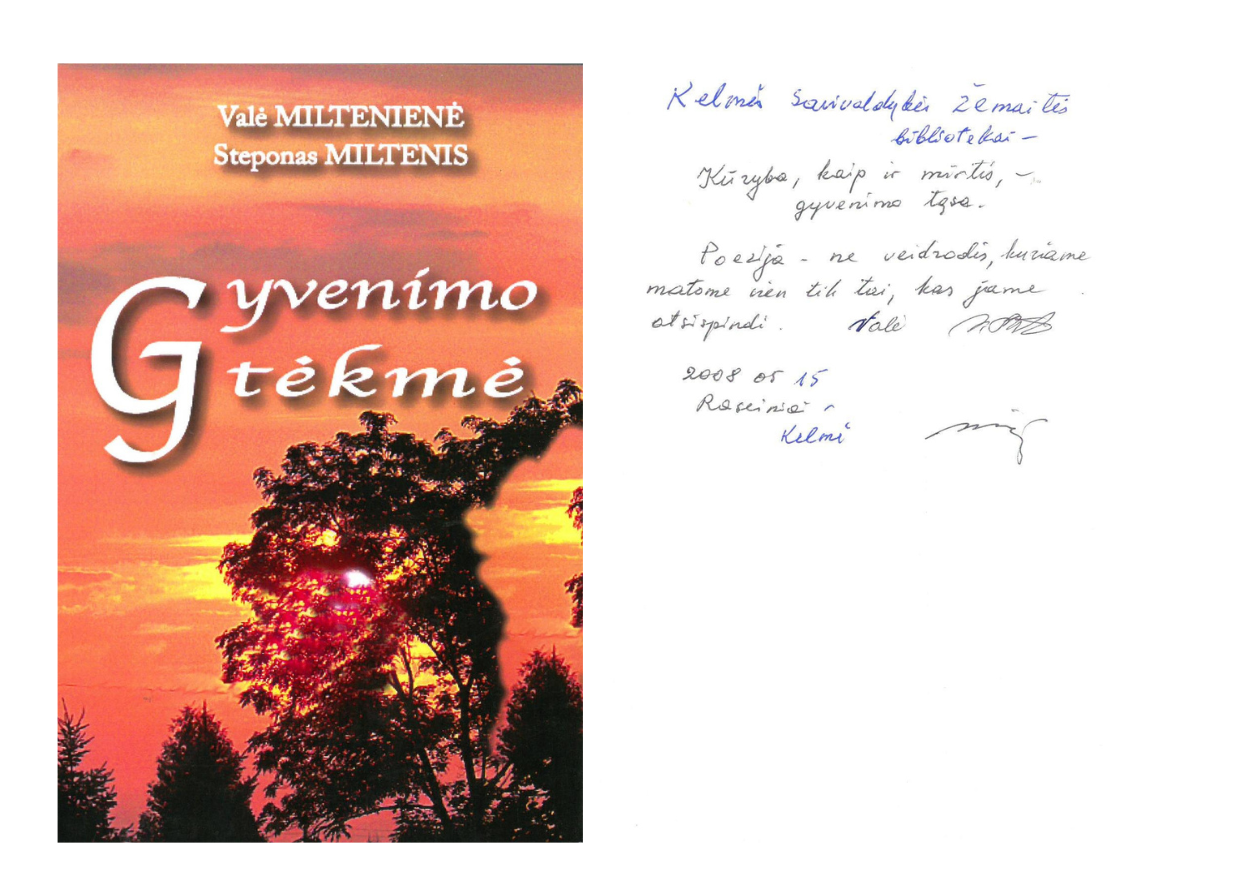 Valė MILTENIENĖ
Steponas MILTENIS
Gyvenimo
tėkmė
Kelmės Savivaldybės Žemaitės
bibliotekai –
Kūryba, kaip ir mirtis, –
gyvenimo tąsa.
Poezija – ne veidrodis, kuriame
matome vien tik tai, kas jame
atsispindi. Valė
2008 05 15
Raseiniai –
Kelmė